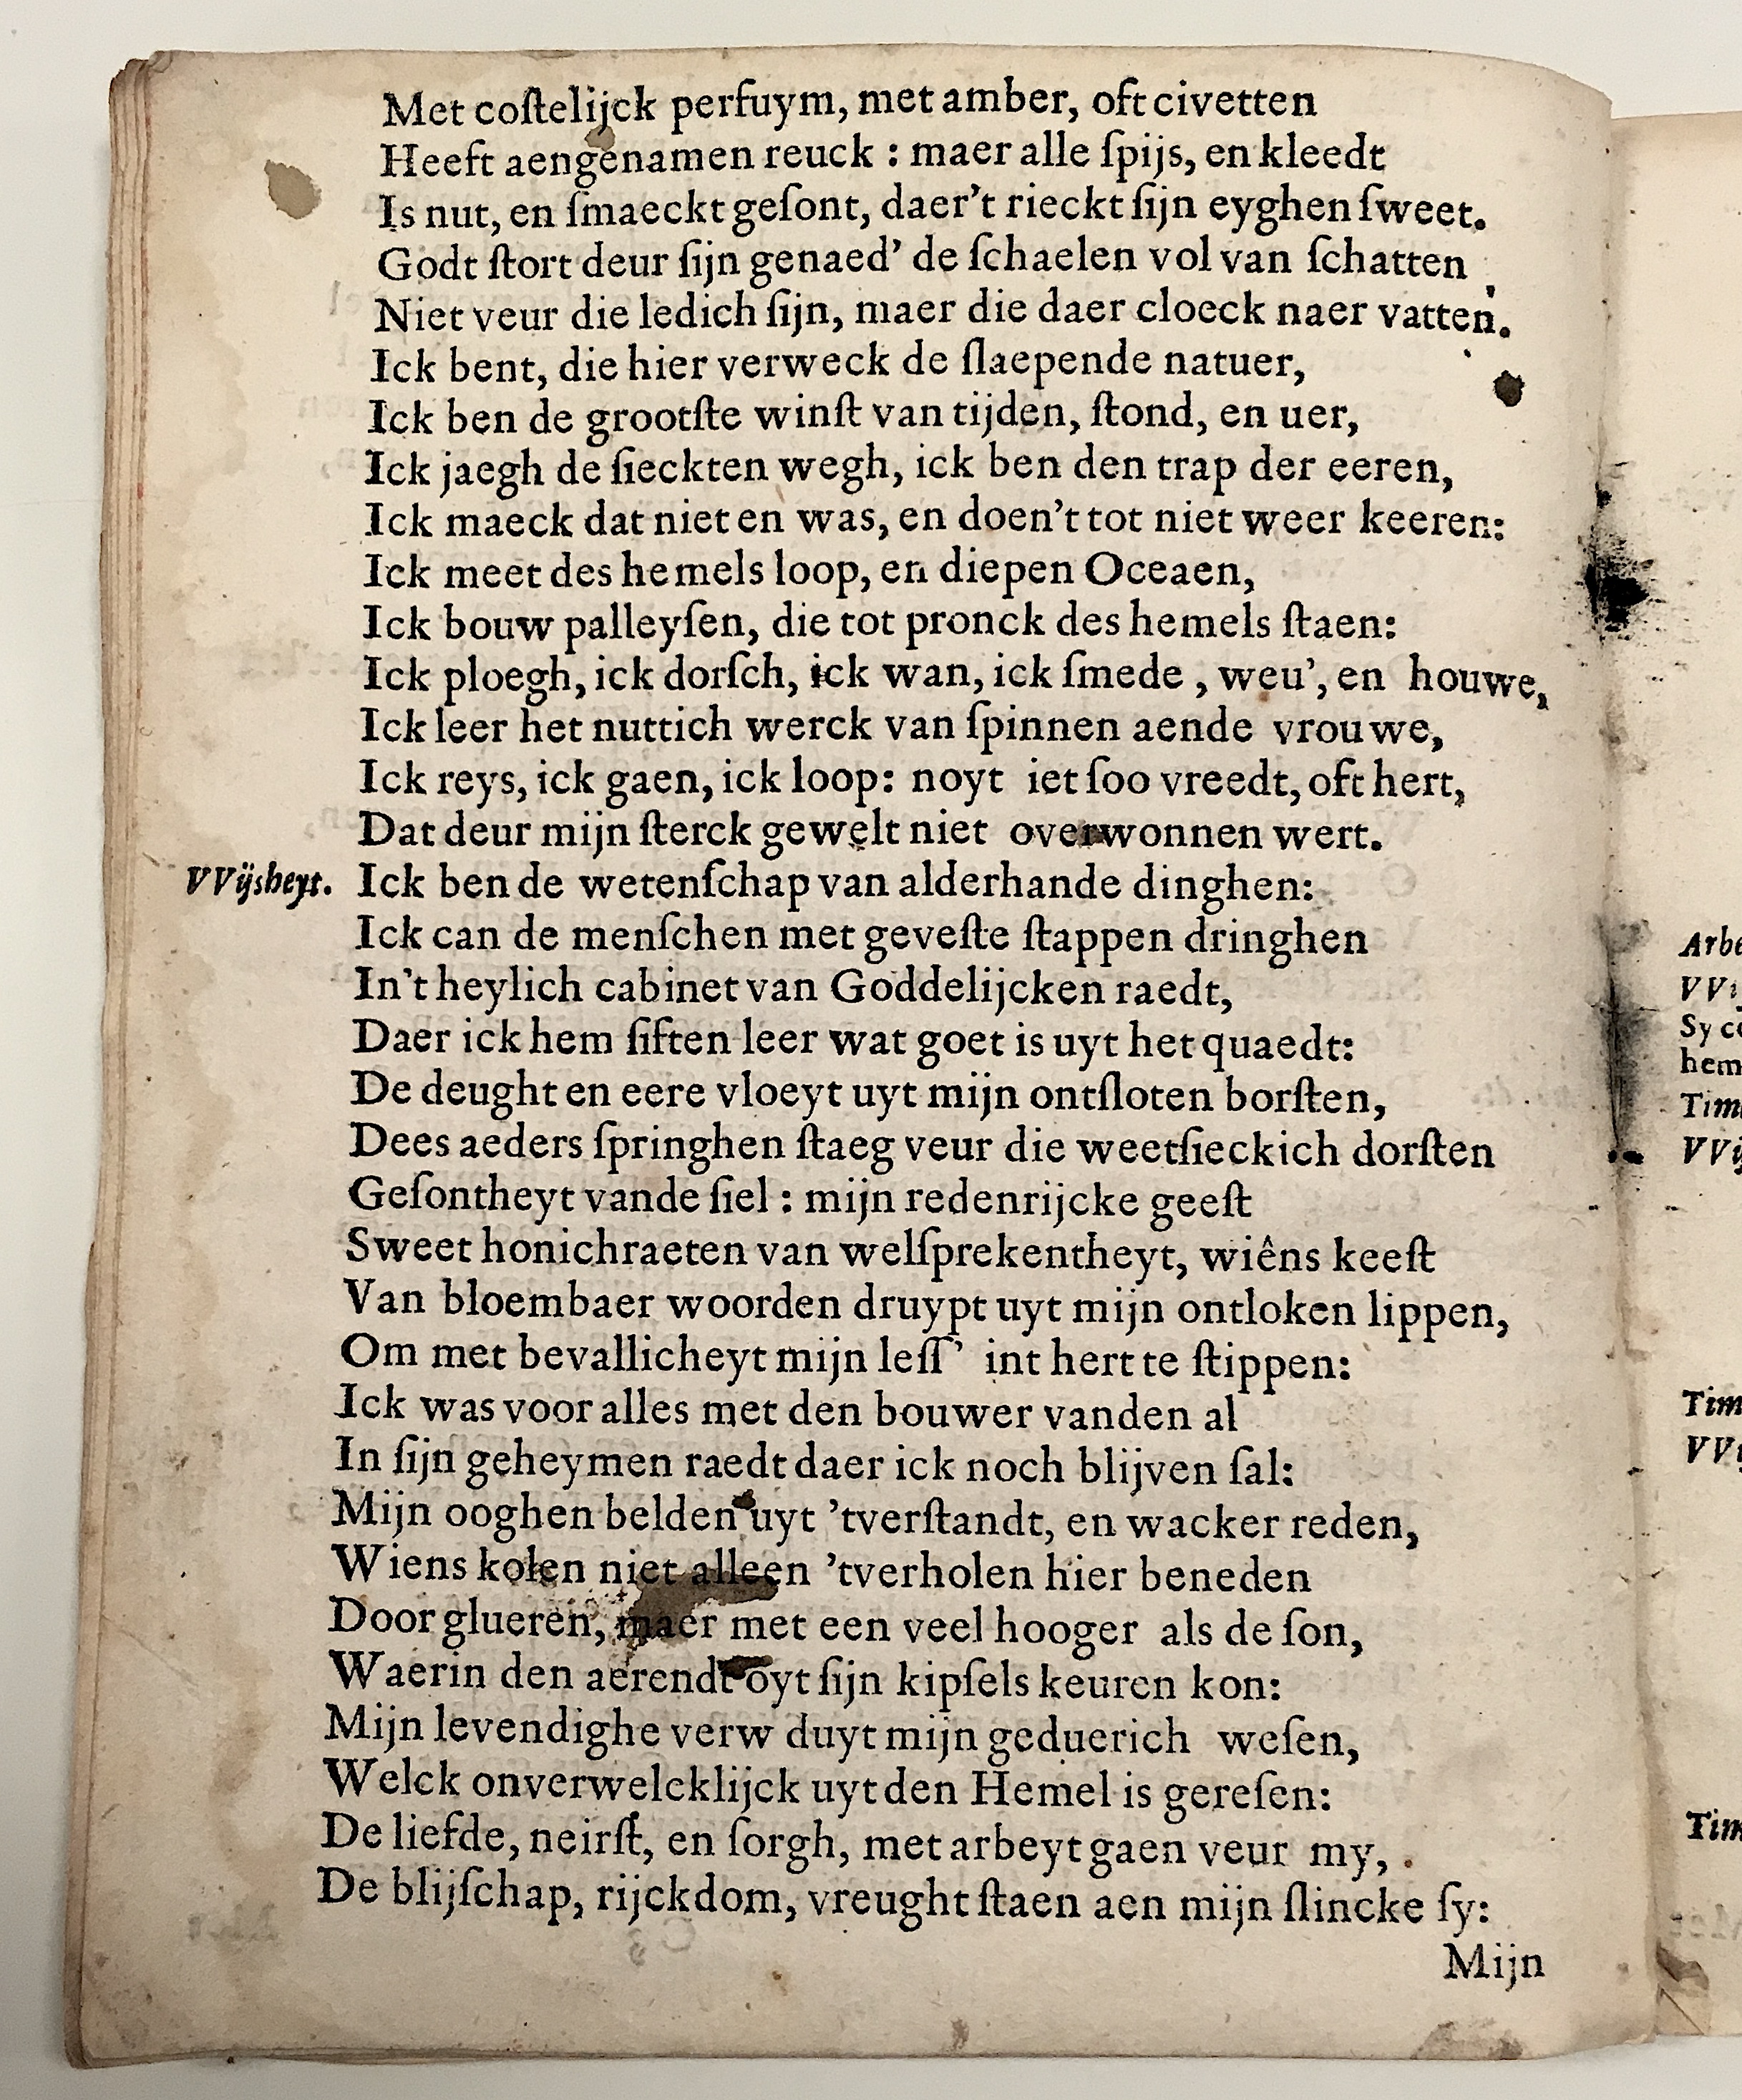 Met coſtelijck perfuym, met amber, oft civetten
Heeft aengenamen reuck : maer alle ſpijs, en kleedt
Is nut, en ſmaeckt geſont, daer't rieckt ſijn eyghen ſweet.
Godt ſtort deur ſijn genaed' de ſchaelen vol van ſchatten
Niet veur die ledich ſijn, maer die daer cloeck naer vatten.
Ick bent, die hier verweck de ſlaepende natuer,
Ick ben de grootſte winſt van tijden, ſtond, en uer,
Ick jaegh de ſieckten wegh, ick ben den trap der eeren,
Ick maeck dat niet en was, en doen't tot niet weer keeren:
Ick meet des hemels loop, en diepen Oceaen,
Ick bouw palleyſen, die tot pronck des hemels ſtaen:
Ick ploegh, ick dorſch, ick wan, ick ſmede , weu', en houwe,
Ick leer het nuttich werck van ſpinnen aende vrouwe,
Ick reys, ick gaen, ick loop: noyt iet ſoo vreedt, oft hert,
Dat deur mijn ſterck gewelt niet overwonnen wert.
VVijsheyt. Ick ben de wetenſchap van alderhande dinghen:
Ick can de menſchen met geveſte ſtappen dringhen
In't heylich cabinet van Goddelijcken raedt,
Daer ick hem ſiften leer wat goet is uyt het quaedt:
De deught en eere vloeyt uyt mijn ontſloten borſten,
Dees aeders ſpringhen ſtaeg veur die weetſieckich dorſten
Geſontheyt vande ſiel : mijn redenrijcke geeſt
Sweet honichraeten van welſprekentheyt, wiêns keeſt
Van bloembaer woorden druypt uyt mijn ontloken lippen,
Om met bevallicheyt mijn leſſ' int hert te ſtippen:
Ick was voor alles met den bouwer vanden al
In ſijn geheymen raedt daer ick noch blijven ſal:
Mijn ooghen belden uyt 'tverſtandt, en wacker reden,
Wiens kolen niet alleen 'tverholen hier beneden
Door glueren, maer met een veel hooger als de ſon,
Waerin den aerendt oyt ſijn kipſels keuren kon:
Mijn levendighe verw duyt mijn geduerich weſen,
Welck onverwelcklijck uyt den Hemel is gereſen:
De liefde, neirſt, en ſorgh, met arbeyt gaen veur my,
De blijſchap, rijckdom, vreught ſtaen aen mijn ſlincke ſy:
Mijn
Sy
hem
Tim
Tim